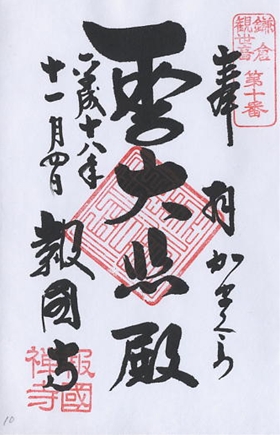 鎌倉
観世音
第十番
奉拝 かまくら
聖大悲殿
平成十八年
十一月四日
報國寺
報國
禅寺
10